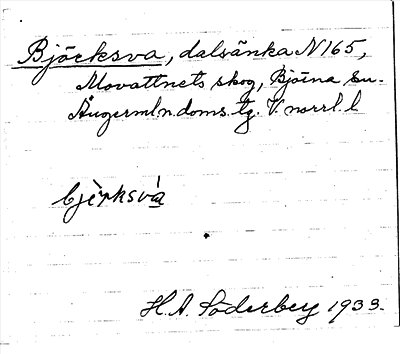 Björksva, dalsänka N165,
Movattnets skog, Bjärna sn.
Ångerml. n. doms. tg. V. norrl. l.
bjèrksvá
H. A. Söderberg 1933.